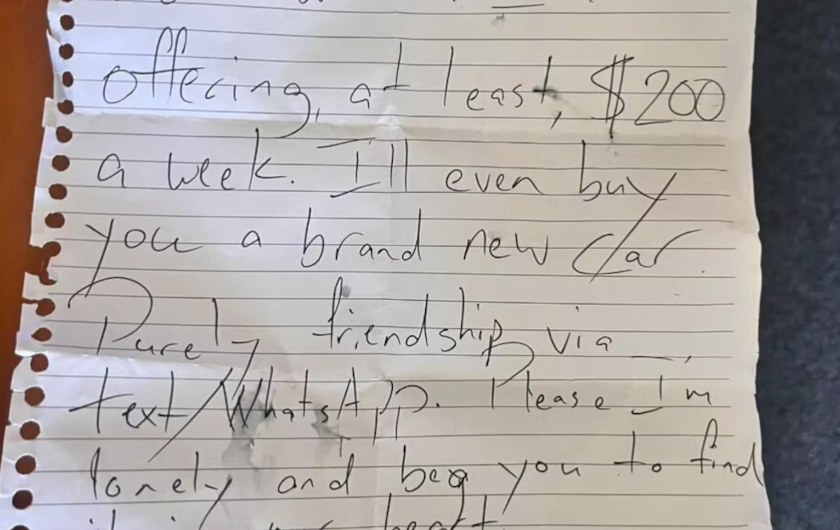 offering, at least, $200
a week. I'll even buy
you a brand new car.
Purely friendship via
text/WhatsApp. Please I'm
lonely and beg you to find
heart